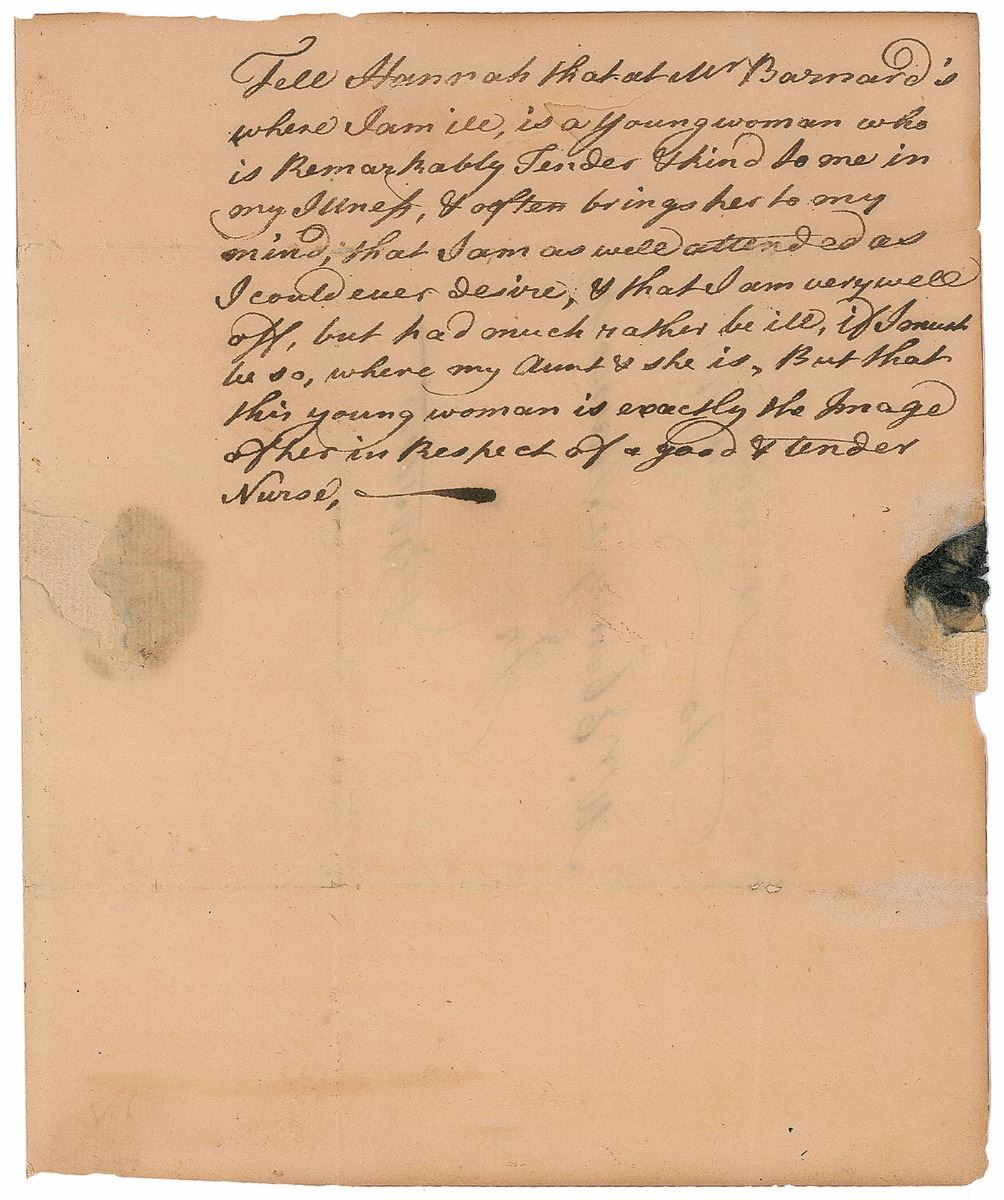 Tell Hannah that at Mr Barnard's
where I am ill, is a Young woman who
is Remarkably Tender & kind to me in
my Illness, & often brings her to my
mind, that I am as well attended as
I could ever desire, & that I am very well
off, but had much rather be ill, if I must
be so, where my Aunt & she is, But that
this young woman is exactly the Image
of her in Respect of a good & tender
Nurse,